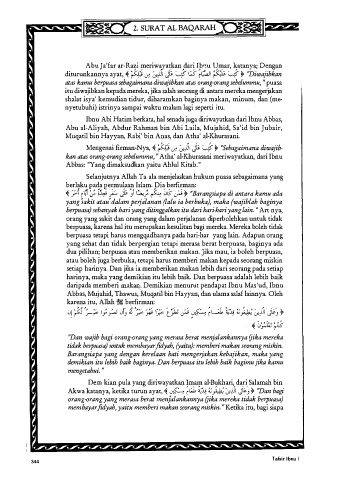 2. SURAT AL BAQARAH
Abu Ja'far ar-Razi meriwayatkan dari Ibnu Umar, katanya; Dengan
diturunkannya ayat, ﴿ كُتِبَ عَلَيْكُمُ الصِّيَامُ كَمَا كُتِبَ عَلَى الَّذِينَ مِن قَبْلِكُمْ ﴾ "Diwajibkan
atas kamu berpuasa sebagaimana diwajibkan atas orang-orang sebelummu," puasa
itu diwajibkan kepada mereka, jika salah seorang di antara mereka mengerjakan
shalat isya' kemudian tidur, diharamkan baginya makan, minum, dan (me-
nyetubuhi) istrinya sampai waktu malam lagi seperti itu.
Ibnu Abi Hatim berkata, hal senada juga diriwayatkan dari Ibnu Abbas,
Abu al-Aliyah, Abdur Rahman bin Abi Laila, Mujahid, Sa'id bin Jubair,
Muqatil bin Hayyan, Rabi' bin Anas, dan Atha' al-Khurasani.
Mengenai firman-Nya, ﴿ كُتِبَ عَلَى الَّذِينَ مِن قَبْلِكُمْ ﴾ "Sebagaimana diwajib-
kan atas orang-orang sebelummu," Atha' al-Khurasani meriwayatkan, dari Ibnu
Abbas: "Yang dimaksudkan yaitu Ahlul Kitab."
Selanjutnya Allah Ta'ala menjelaskan hukum puasa sebagaimana yang
berlaku pada permulaan Islam. Dia berfirman:
﴿ فَمَن كَانَ مِنكُم مَّرِيضًا أَوْ عَلَى سَفَرٍ فَعِدَّةٌ مِّنْ أَيَّامٍ أُخَرَ ﴾ "Barangsiapa di antara kamu ada
yang sakit atau dalam perjalanan (lalu ia berbuka), maka (wajiblah baginya
berpuasa) sebanyak hari yang ditinggalkan itu dari hari-hari yang lain." Artinya,
orang yang sakit dan orang yang dalam perjalanan diperbolehkan untuk tidak
berpuasa, karena hal itu merupakan kesulitan bagi mereka. Mereka boleh tidak
berpuasa tetapi harus mengqadhanya pada hari-hari yang lain. Adapun orang
yang sehat dan tidak berpergian tetapi merasa berat berpuasa, baginya ada
dua pilihan; berpuasa atau memberikan makan. Jika mau, ia boleh berpuasa,
atau boleh juga berbuka, tetapi harus memberi makan kepada seorang miskin
setiap harinya. Dan jika ia memberikan makan lebih dari seorang pada setiap
harinya, maka yang demikian itu lebih baik. Dan berpuasa adalah lebih baik
daripada memberi makan. Demikian menurut pendapat Ibnu Mas'ud, Ibnu
Abbas, Mujahid, Thawus, Muqatil bin Hayyan, dan ulama salaf lainnya. Oleh
karena itu, Allah ﷻ berfirman:
﴿ وَعَلَى الَّذِينَ يُطِيقُونَهُ فِدْيَةٌ طَعَامُ مِسْكِينٍ فَمَن تَطَوَّعَ خَيْرًا فَهُوَ خَيْرٌ لَّهُ وَأَن تَصُومُوا خَيْرٌ لَّكُمْ إِن
كُنتُمْ تَعْلَمُونَ ﴾
"Dan wajib bagi orang-orang yang merasa berat menjalankannya (jika mereka
tidak berpuasa) untuk membayar fidyah, (yaitu); memberi makan seorang miskin.
Barangsiapa yang dengan kerelaan hati mengerjakan kebajikan, maka yang
demikian itu lebih baik baginya. Dan berpuasa itu lebih baik bagimu jika kamu
mengetahui."
Demikian pula yang diriwayatkan Imam al-Bukhari, dari Salamah bin
Akwa katanya, ketika turun ayat, ﴿ وَعَلَى الَّذِينَ يُطِيقُونَهُ فِدْيَةٌ طَعَامُ مِسْكِينٍ ﴾ "Dan bagi
orang-orang yang merasa berat menjalankannya (jika mereka tidak berpuasa)
membayar fidyah, yaitu memberi makan seorang miskin." Ketika itu, bagi siapa
344
Tafsir Ibnu I